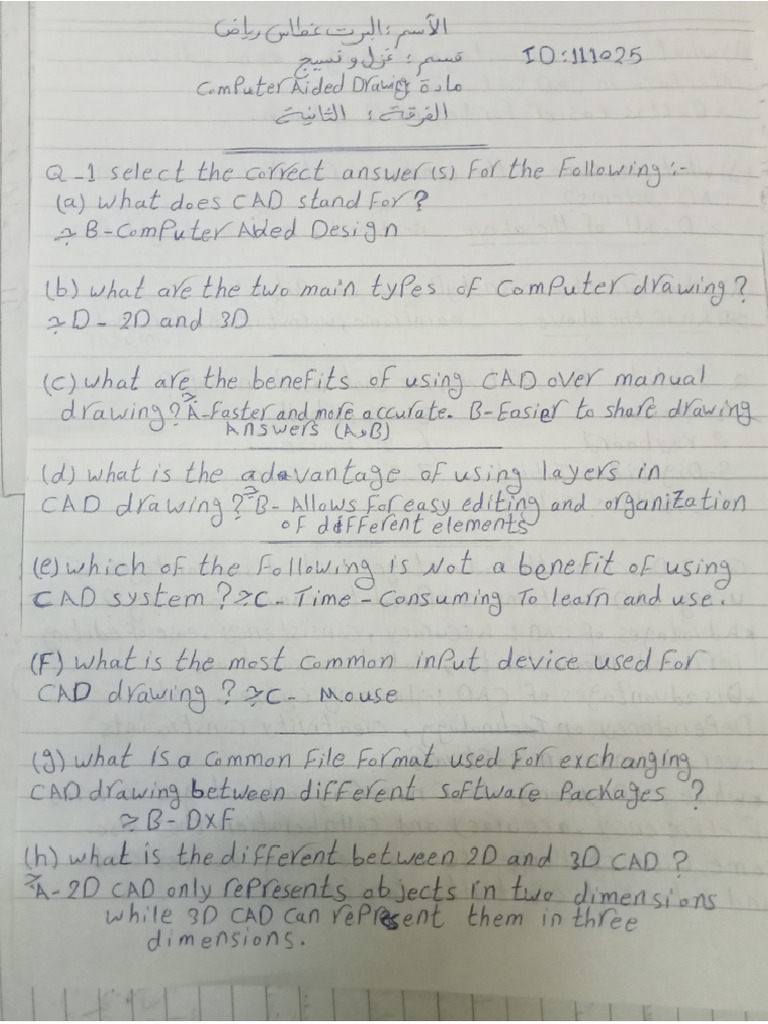 الأسم : البرت غطاس رياض
قسم : غزل و نسيج ID:111025
Computer Aided Drawing مادة
الفرقة : الثانية
Q-1 select the correct answer(s) for the following:-
(a) what does CAD stand for?
B-Computer Aded Design
(b) what are the two main types of computer drawing?
D- 2D and 3D
(c) what are the benefits of using CAD over manual
drawing? A-faster and more accurate. B-Easier to share drawing
Answers (A,B)
(d) what is the adavantage of using layers in
CAD drawing? B- Allows for easy editing and organization
of different elements
(e) which of the following is Not a benefit of using
CAD system? C- Time-Consuming To learn and use.
(F) what is the most common input device used for
CAD drawing? C- Mouse
(g) what is a common file format used for exchanging
CAD drawing between different software packages ?
B- DXF
(h) what is the different between 2D and 3D CAD ?
A- 2D CAD only represents objects in two dimensions
while 3D CAD can represent them in three
dimensions.